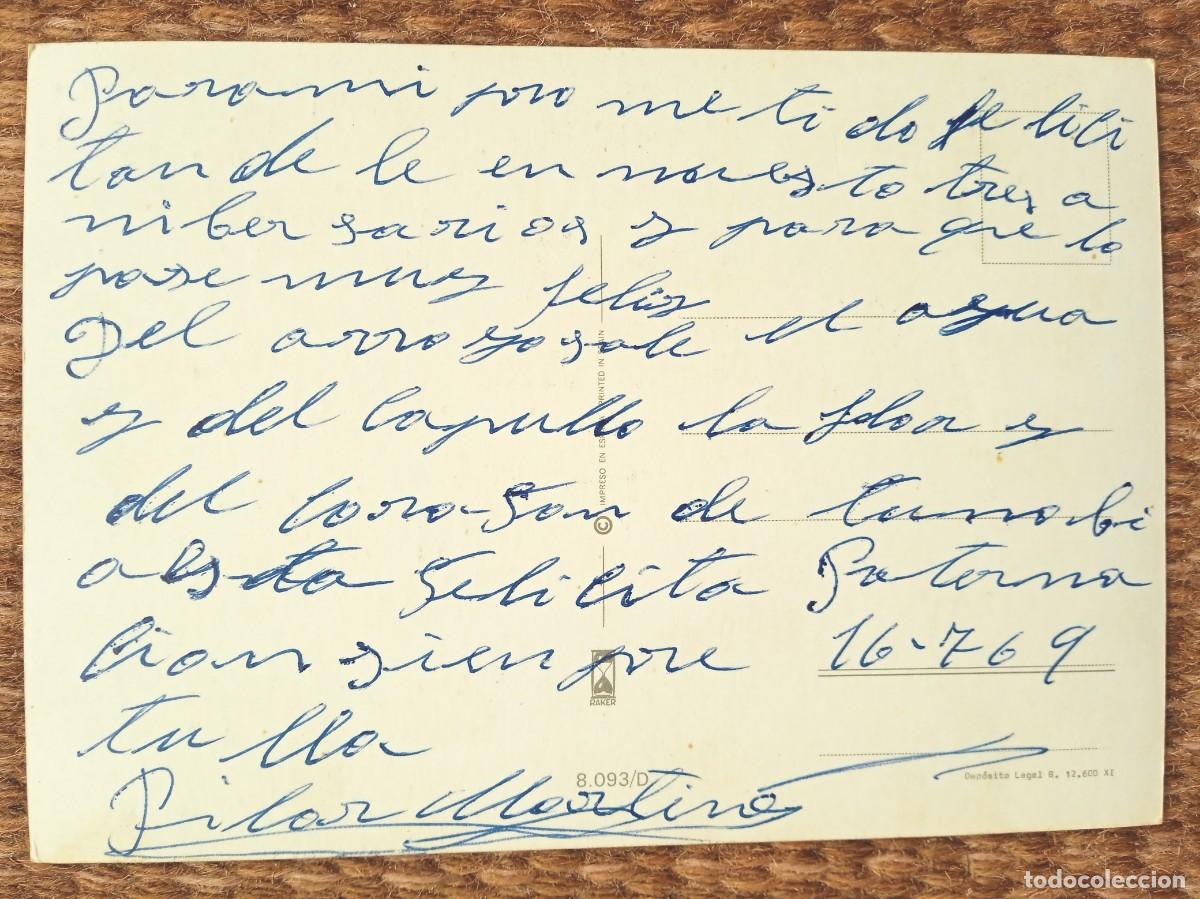 Para mi pro me ti do fe lici
tan de le en nuesto tres a
niber sarios y para que lo
pase muy feliz
Del arroyo sale el agua
y del capullo la flor y
del cora-son de tu nobi
a esta felicita
cion sien pre
tulla
Paterna
16-7 69
Pilar Martines
IMPRESO EN ESPAÑA PRINTED IN SPAIN
©
RAKER
8.093/D
Depósito Legal B. 12.600 XI
todocoleccion